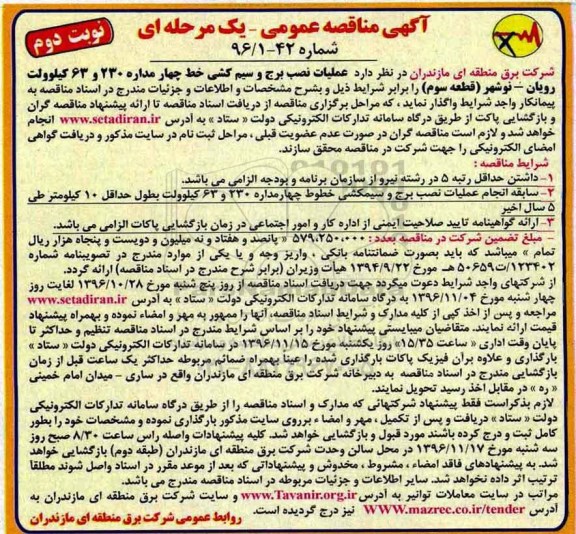 آگهی مناقصه عمومی - یک مرحله ای
نوبت دوم
شماره ۴۲-۹۶/۱
شرکت برق منطقه ای مازندران در نظر دارد عملیات نصب برج و سیم کشی خط چهار مداره ۲۳۰ و ۶۳ کیلوولت
رویان - نوشهر (قطعه سوم) را برابر شرایط ذیل و بشرح مشخصات و اطلاعات و جزئیات مندرج در اسناد مناقصه به
پیمانکار واجد شرایط واگذار نماید ، که مراحل برگزاری مناقصه از دریافت اسناد مناقصه تا ارائه پیشنهاد مناقصه گران
و بازگشایی پاکت از طریق درگاه سامانه تدارکات الکترونیکی دولت « ستاد » به آدرس www.setadiran.ir انجام
خواهد شد و لازم است مناقصه گران در صورت عدم عضویت قبلی ، مراحل ثبت نام در سایت مذکور و دریافت گواهی
امضای الکترونیکی را جهت شرکت در مناقصه محقق سازند.
شرایط مناقصه :
۱- داشتن حداقل رتبه ۵ در رشته نیرو از سازمان برنامه و بودجه الزامی می باشد.
۲- سابقه انجام عملیات نصب برج و سیمکشی خطوط چهارمداره ۲۳۰ و ۶۳ کیلوولت بطول حداقل ۱۰ کیلومتر طی
۵ سال اخیر
۳- ارائه گواهینامه تایید صلاحیت ایمنی از اداره کار و امور اجتماعی در زمان بازگشایی پاکات الزامی می باشد.
- مبلغ تضمین شرکت در مناقصه بعدد : ۵۷۹،۲۵۰،۰۰۰ « پانصد و هفتاد و نه میلیون و دویست و پنجاه هزار ریال
تمام » میباشد که باید بصورت ضمانتنامه بانکی ، واریز وجه و یا یکی از موارد مندرج در تصویبنامه شماره
۱۲۳۴۰۲/ت۵۰۶۵۹ هـ مورخ ۱۳۹۴/۹/۲۲ هیأت وزیران (برابر شرح مندرج در اسناد مناقصه) ارائه گردد.
از شرکتهای واجد شرایط دعوت میگردد جهت دریافت اسناد مناقصه از روز پنج شنبه مورخ ۱۳۹۶/۱۰/۲۸ لغایت روز
چهار شنبه مورخ ۱۳۹۶/۱۱/۰۴ به درگاه سامانه تدارکات الکترونیکی دولت « ستاد » به آدرس www.setadiran.ir
مراجعه و پس از اخذ کپی از کلیه مدارک و شرایط اسناد مناقصه آنها را ممهور به مهر و امضاء نموده و بهمراه پیشنهاد
قیمت ارائه نمایند. متقاضیان میبایستی پیشنهاد خود را بر اساس شرایط مندرج در اسناد مناقصه تنظیم و حداکثر تا
پایان وقت اداری « ساعت ۱۵/۳۵» روز یکشنبه مورخ ۱۳۹۶/۱۱/۱۵ در سامانه تدارکات الکترونیکی دولت « ستاد »
بارگذاری و علاوه بران فیزیک پاکات بارگذاری شده را عینا بهمراه ضمائم مربوطه حداکثر یک ساعت قبل از زمان
بازگشایی مندرج در اسناد مناقصه به دبیرخانه شرکت برق منطقه ای مازندران واقع در ساری - میدان امام خمینی
« ره » در مقابل اخذ رسید تحویل نمایند.
لازم بذکراست فقط پیشنهاد شرکتهائی که مدارک و اسناد مناقصه را از طریق درگاه سامانه تدارکات الکترونیکی
دولت « ستاد » دریافت و پس از تکمیل ، مهر و امضاء برروی سایت مذکور بارگذاری نموده و مشخصات خود را بطور
کامل ثبت و درج کرده باشند مورد قبول و بازگشایی خواهد شد. کلیه پیشنهادات واصله راس ساعت ۸/۳۰ صبح روز
سه شنبه مورخ ۱۳۹۶/۱۱/۱۷ در محل سالن وحدت شرکت برق منطقه ای مازندران (طبقه دوم) بازگشایی خواهد
شد. به پیشنهادهای فاقد امضاء ، مشروط ، مخدوش و پیشنهاداتی که بعد از موعد مقرر در اسناد واصل شوند مطلقا
ترتیب اثر داده نخواهد شد. سایر اطلاعات و جزئیات مربوطه در اسناد مناقصه مندرج می باشد.
مراتب در سایت معاملات توانیر به آدرس www.Tavanir.org.ir و سایت شرکت برق منطقه ای مازندران به
آدرس WWW.mazrec.co.ir/tender نیز درج گردیده است.
روابط عمومی شرکت برق منطقه ای مازندران